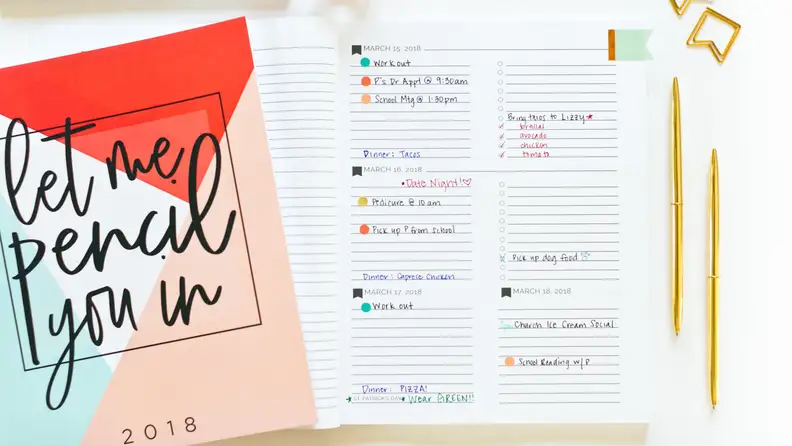 let me
pencil
you in
2018
MARCH 15, 2018
Work out
P's Dr Appt @ 9:30am
School Mtg @ 1:30pm
Dinner: Tacos
Bring tacos to Lizzy
tortillas
avocado
chicken
tomato
MARCH 16, 2018
Date Night!
Pedicure @ 10am
Pick up P from school
Dinner: Caprese Chicken
Pick up dog food
MARCH 17, 2018
Work out
Dinner: PIZZA!
ST. PATRICK'S DAY
Wear GREEN!!
MARCH 18, 2018
Church Ice Cream Social
School Reading w/P